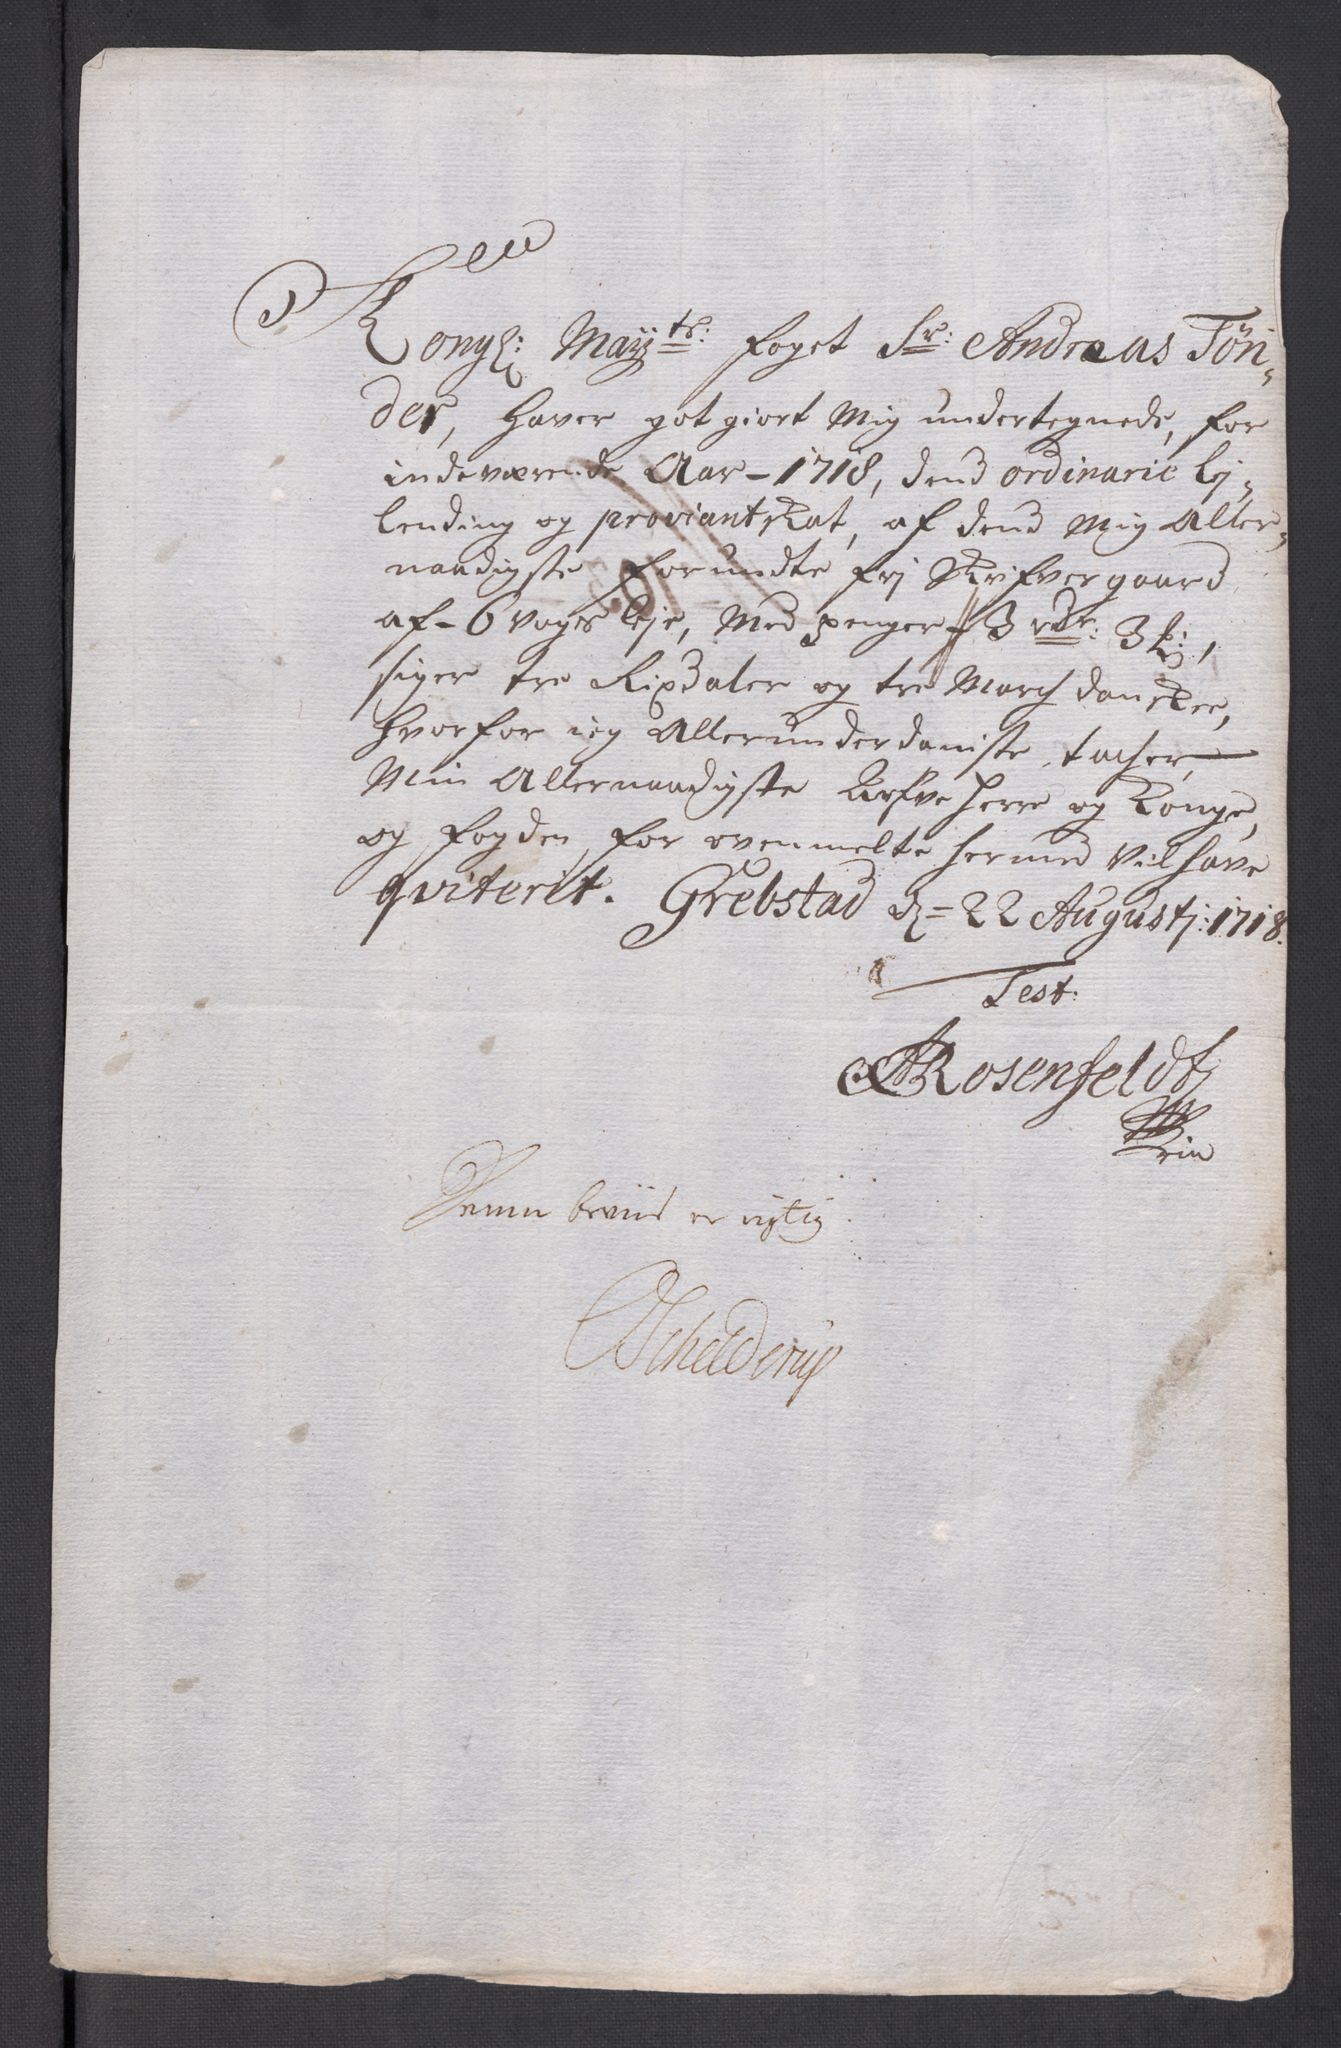 Kongl: May:ts: foget Sr: Andreas Tön-
der, haver got giort Mig undertegnede, for
indeværende Aar - 1718, dend ordinarie lej-
lending og proviantskat, af dend Mig Aller-
naadigste forundte frj Skrifvergaard
af - 6 voger leje, Med penger - 3 rdr: 3 ,
siger tre Rixdaler og tre March danskee,
hvorfor ieg Allerunderdaniste tacher,
Min Allernaadigste Arfve Herre og Konge,
og fogden for ovenmelte hermed vil have
qviterit. Grebstad d= 22 Augustj: 1718.
Test:
Rosenfeldt

Denne beviis er rigtig
Schelderup